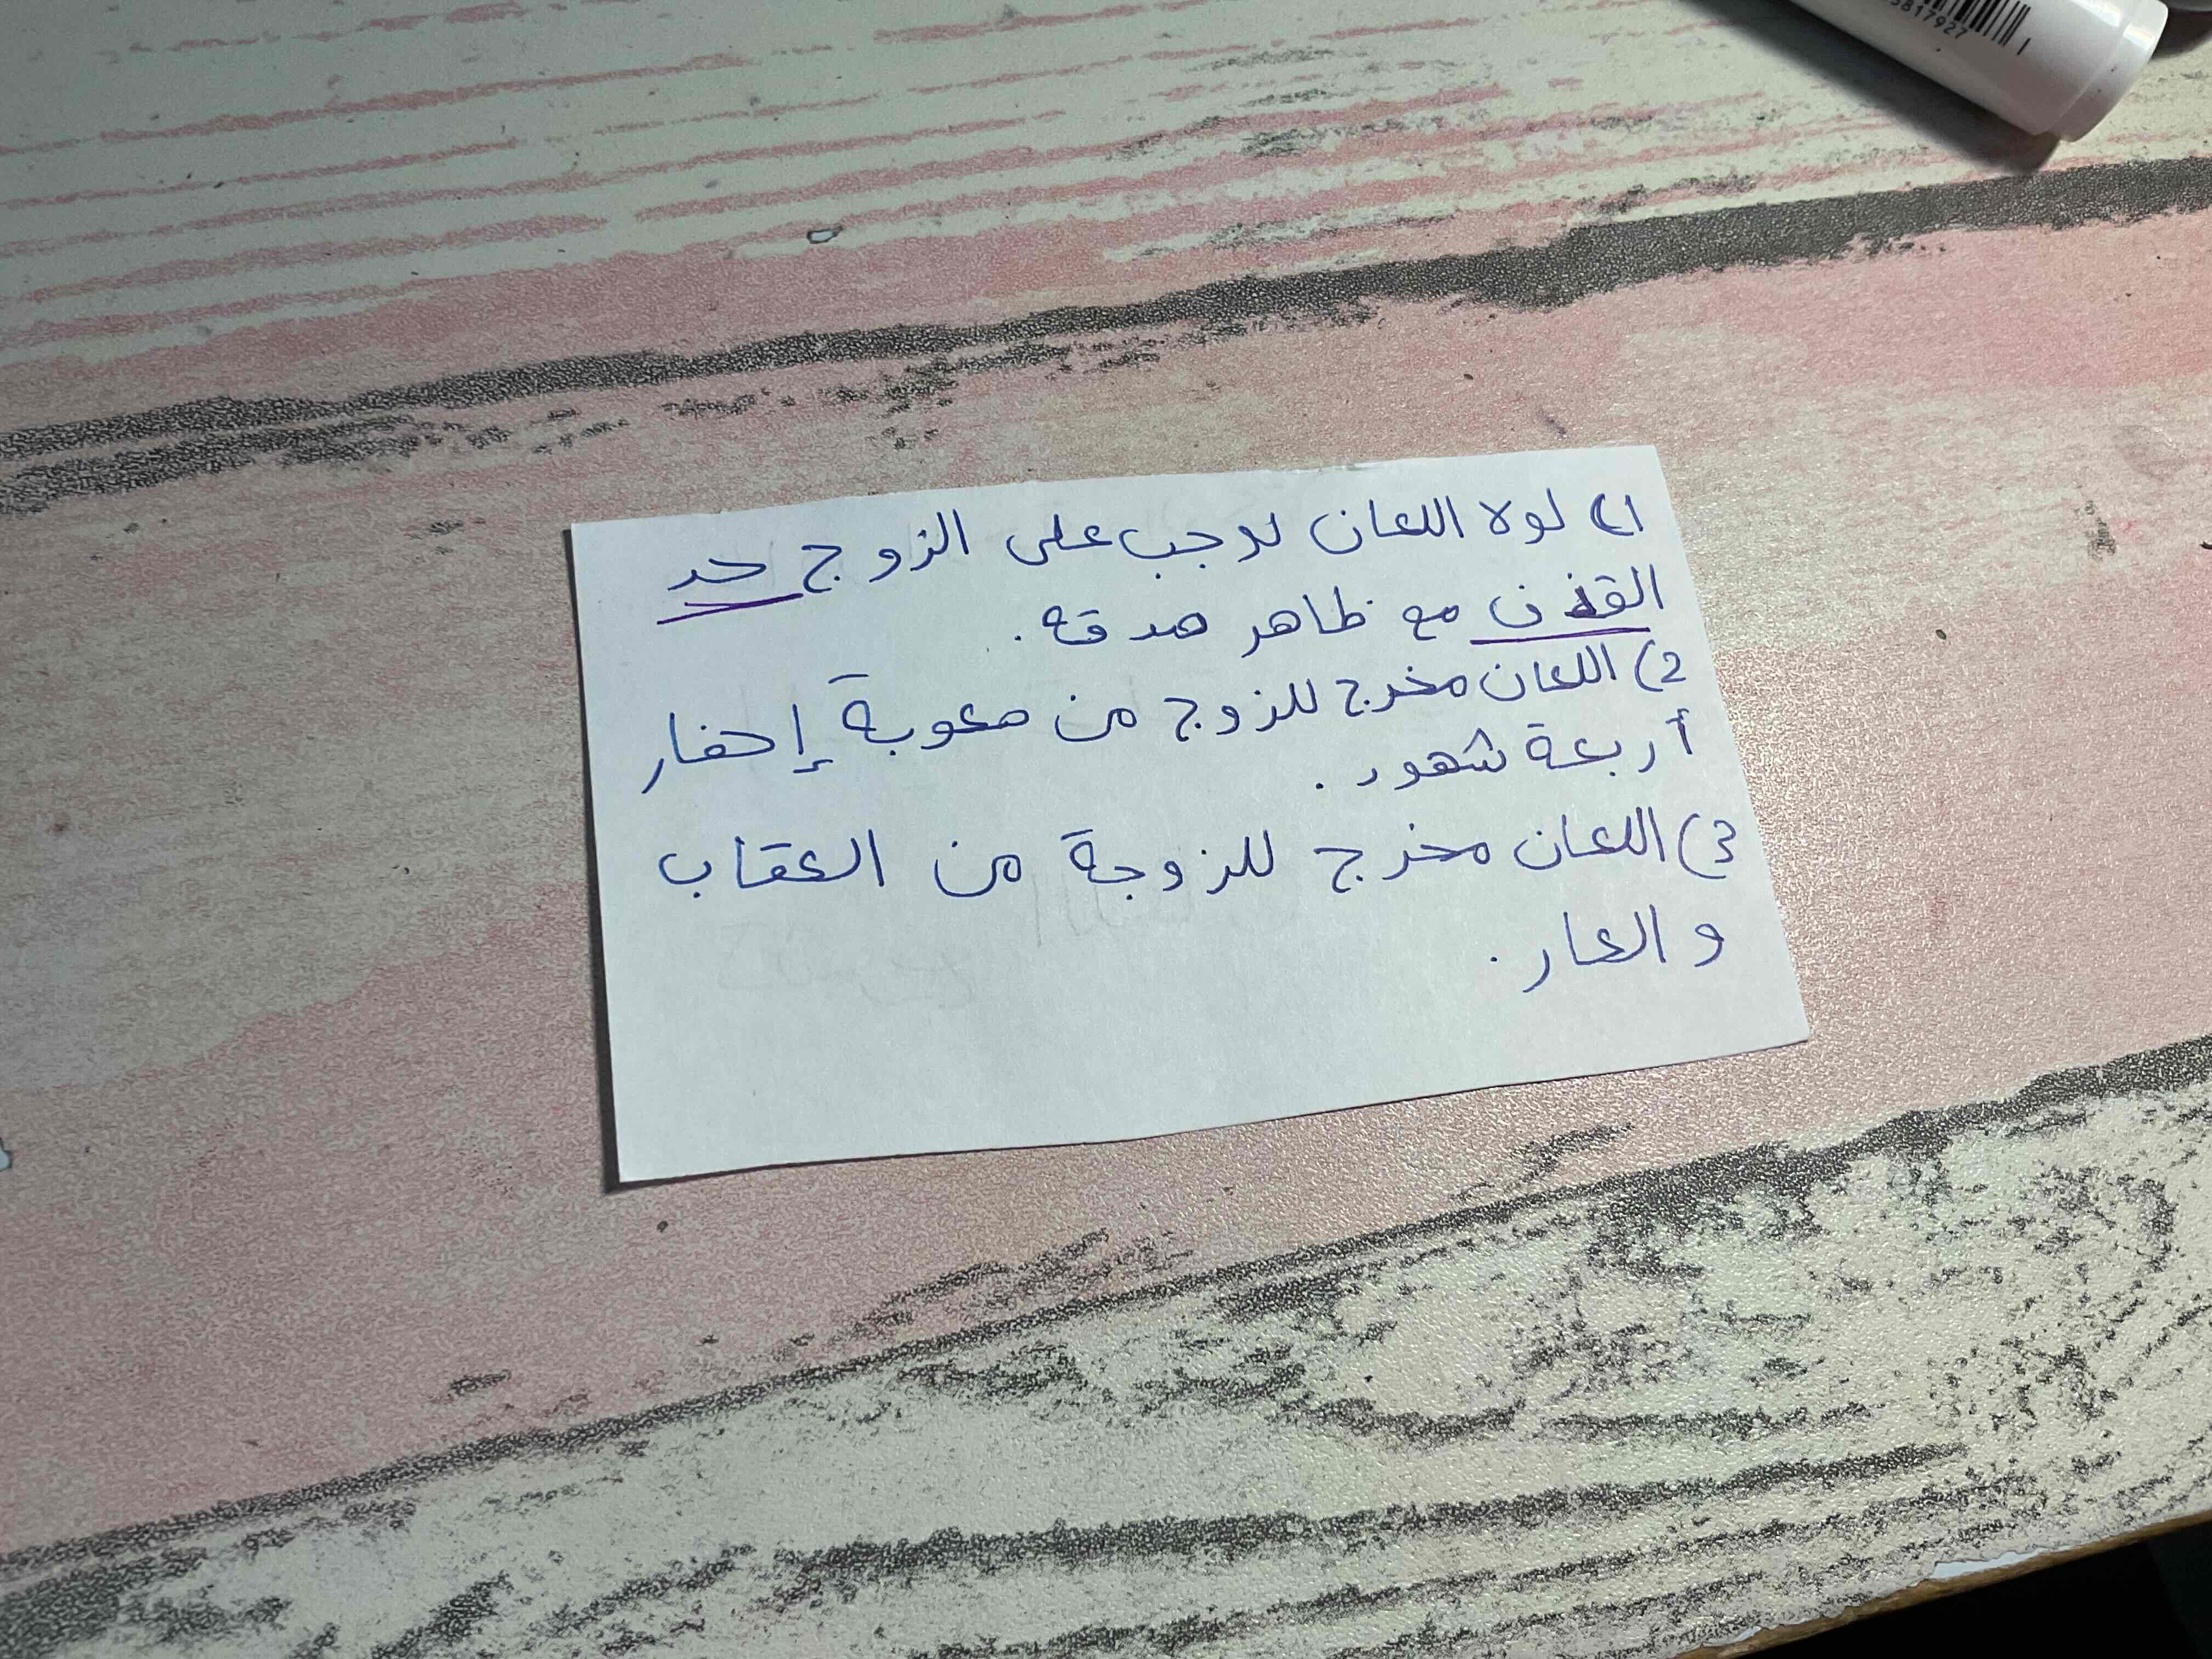 1) لولا اللعان لوجب على الزوج حد
القذف مع ظاهر صدقه.
2) اللعان مخرج للزوج من صعوبة إحضار
أربعة شهود.
3) اللعان مخرج للزوجة من العقاب
والعار.